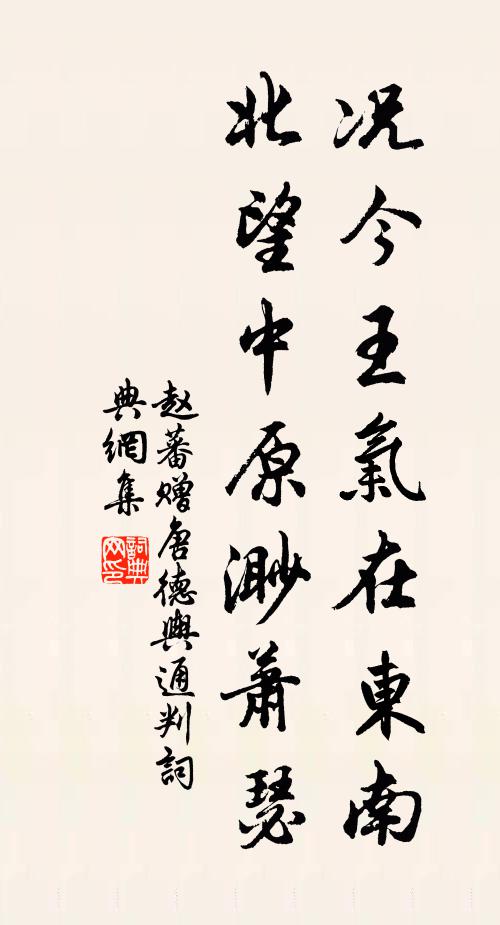 况今王氣在東南
北望中原渺蕭瑟
赵蕃赠唐德輿通判詞
典網集
詞典网印